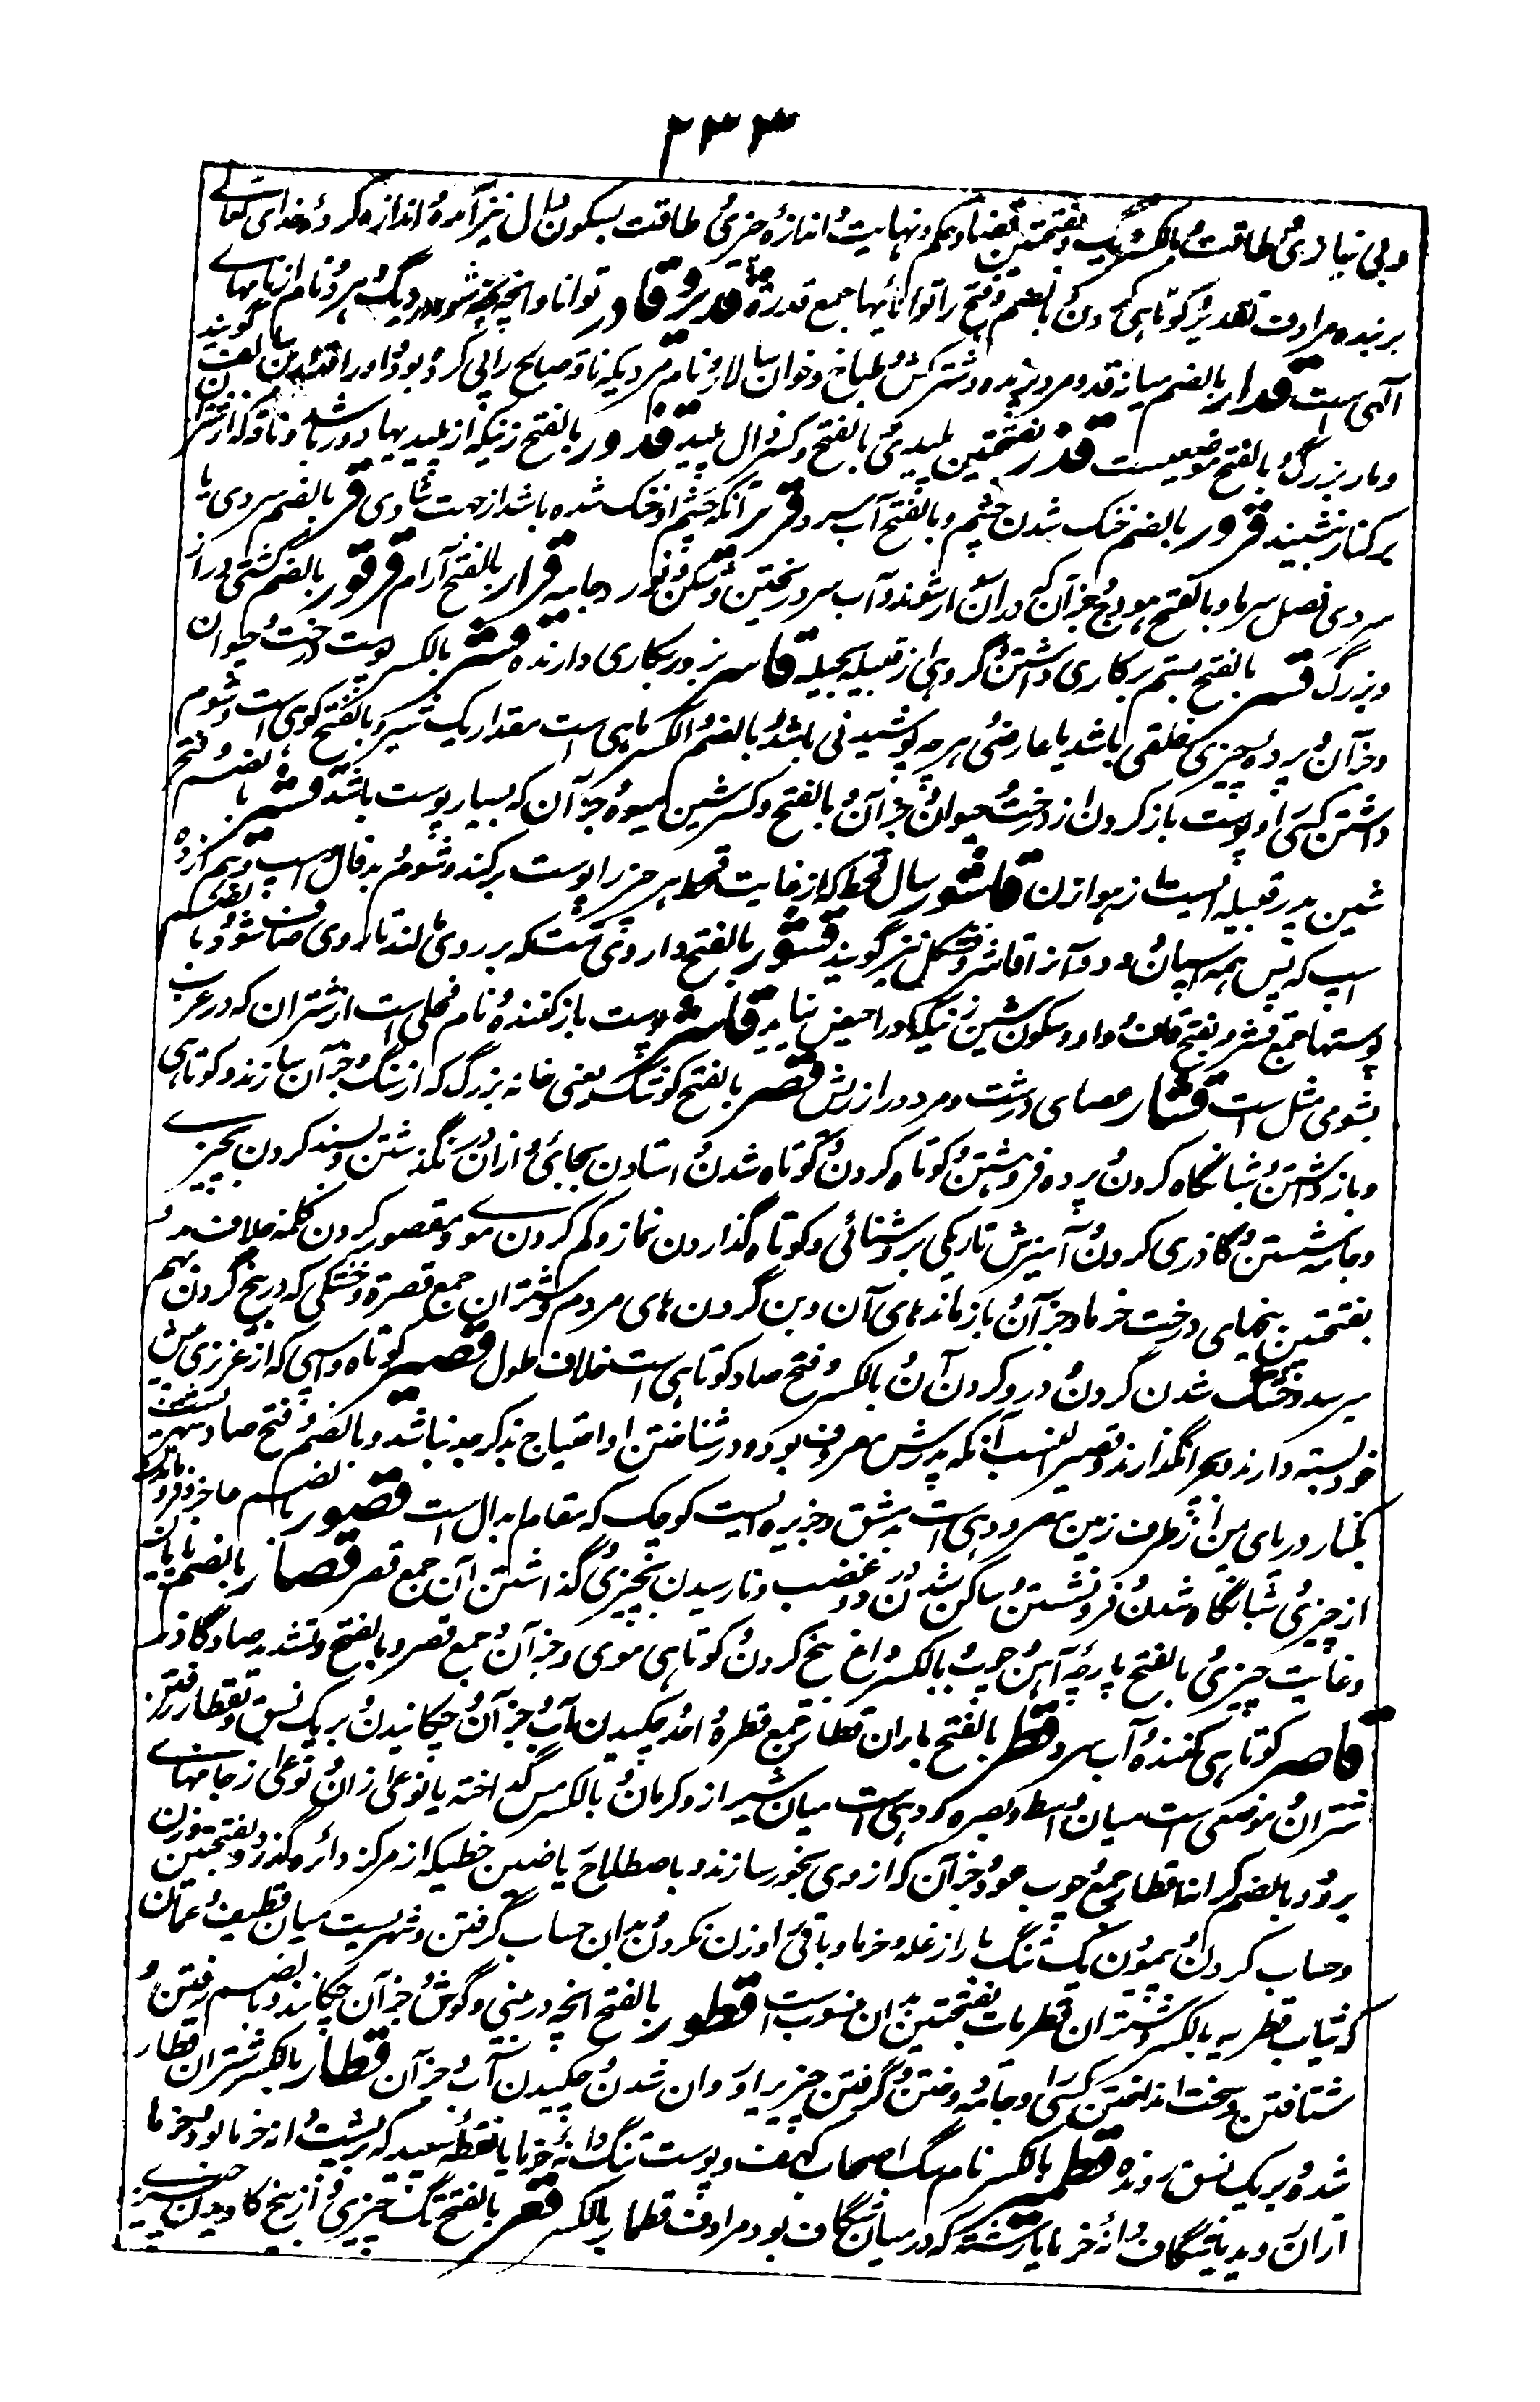 ۲۳۳
وبی نیازی و طاقت و بالکسر دیگ و بفتحتین قضا و حکم و نهایت و اندازهٔ چیزی و طاقت و بسکون دال نیز آمده و اندازه کردهٔ خدای تعالی
بر بنده مرادف تقدیر و کوتاهی گردن و بالضم و فتح را توانائیها جمع قدرة قدیر و قادر توانا و آنچه پخته شود در دیگ و هر دو نام از نامهای
الهی است قدار بالضم میانه قد و مرد و شترکش و طباخ و خوان سالار و نام مردیکه ناقه صالح را پی کرده بود و او را قدار بن سالف گویند
و مار بزرگ و بالفتح موضعیست قذر بفتحتین پلیدی و بالفتح و کسر ذال پلید قذور بالفتح زنیکه از پلیدیها دور باشد و ناقه که از شتران
بر کنار نشیند قرور بالضم خنک شدن چشم و بالفتح آب سرد قریر آنکه چشم او خنک شده باشد از جهت شادی قر بالضم سردی یا
سردی فصل سرما و بالفتح هودج و جز آن که در آن سوار شوند و آب سرد ریختن و سکون و نور و جایه قرار بالفتح آرام قرقور بالضم کشتی دراز
و بزرگ قسر بالفتح بستم بر کاری داشتن و گروهی از قبیله بجیله قاسر بزور بکاری دارنده قشر بالکسر پوست درخت و حیوان
و جز آن و پردهٔ چیزی خلقی باشد یا عارضی و هر چه پوشیدنی باشد و بالضم و الکسر ماهی است مقدار یک شبر و بالفتح کوهی است و شوم
داشتن کسی را و پوست باز کردن از درخت و حیوان و جز آن و بالفتح و کسر شین میوه و جز آن که بسیار پوست باشد قشیر بالضم و فتح
شین پدر قبیله ایست از هوازن قاشور سال قحط که از غایت قحط هر چیز را پوست برکند و شوم و بد فال و اسپ دهم از ده
اسپ که پس همه اسپان دود و آنرا قاشر و فسکل نیز گویند قشور بالفتح داروئی است که بر روی مالند تا روی صاف شود و بالضم
پوستها جمع قشر و بفتح قاف و واو و سکون شین زنیکه او را حیض نیاید قاشر پوست باز کننده و نام فحلی است از شتران که در عرب
بشومی مثل است قشار عصای درشت و مرد دراز ریش قصر بالفتح کوشک یعنی خانه بزرگ که از سنگ و جز آن سازند و کوتاهی
و باز داشتن و شبانگاه کردن و پرده فروهشتن و کوتاه کردن و کوتاه شدن و استادن بجائی و از آن در نگذشتن و بسند کردن بچیزی
و جامه شستن و گاذری کردن و آمیزش تاریکی بروشنائی و کوتاه گذاردن نماز و کم کردن موی و مقصور کردن کلمه خلاف مد و
بفتحتین بیخهای درخت خرما و جز آن و بازمانده‌های آن و بن گردن های مردم و شتران جمع قصرة و خشکی که در بیخ گردن بهم
میرسد و خشک شدن گردن و درو کردن آن و بالکسر و فتح صاد کوتاهی است خلاف طول قصیر کوتاه و اسپی که از عزیزی پیش
خود بسته دارند و بچرا نگذارند و قصیر النسب آنکه پدرش معروف بود و در شناختن او احتیاج بذکر جد نباشد و بالضم و فتح صاد شهریست
بکنار دریای یمن از طرف زمین مصر و دهی است بدمشق و جزیره ایست کوچک که مقام ابدال است قصور بالضم عاجز و فرو ماندن
از چیزی و شبانگاه شدن و فرو نشستن و ساکن شدن درد و غضب و نارسیدن بچیزی و گذاشتن آن و جمع قصر قصار بالضم پایان
و غایت چیزی و بالفتح پارچه آهن و چوب و بالکسر داغ بیخ گردن و کوتاهی موی و جز آن و جمع قصر و بالفتح و تشدید صاد گاذر
قاصر کوتاهی کننده و آب سرد قطر بالفتح باران قطار جمع قطره و آمد چکیدن آب و جز آن و چکانیدن و بر یک نسق و بقطار رفتن
شتران و موضعی است میان واسط و بصره و کودهی است میان شیراز و کرمان و بالکسر مس گداخته یا نوعی از آن و نوعی از جامهای
برود و بالضم کرانه اقطار جمع و چوب عود و جز آن که از وی بخور سازند و باصطلاح ریاضیین خطیکه از مرکز دائره گذرد و بفتحتین وزن
و حساب کردن و پیمودن یک تنگ بار از غله و خرما و باقی را وزن نکردن و بدان حساب گرفتن و شهریست میان قطیف و عمان
که ثیاب قطریه بالکسر و شتران قطریات بفتحتین بدان منسوب است قطور بالفتح آنچه در بینی و گوش و جز آن چکانند و بالضم رفتن و
شتافتن و سخت انداختن کسی را و جامه دوختن و گرفتن چیزی را و روان شدن و چکیدن آب و جز آن قطار بالکسر شتران قطار
شده و بر یک نسق رونده قطمیر بالکسر نام سگ اصحاب کهف و پوست تنگ دانهٔ خرما یا نقطهٔ سپید که بر پشت دانه خرما بود و خرما
از آن روید یا شگاف دانهٔ خرما یا رشته که در میان شگاف بود مرادف قطمار بالکسر قعر بالفتح تگ چیزی و از بیخ کاویدن چیزی